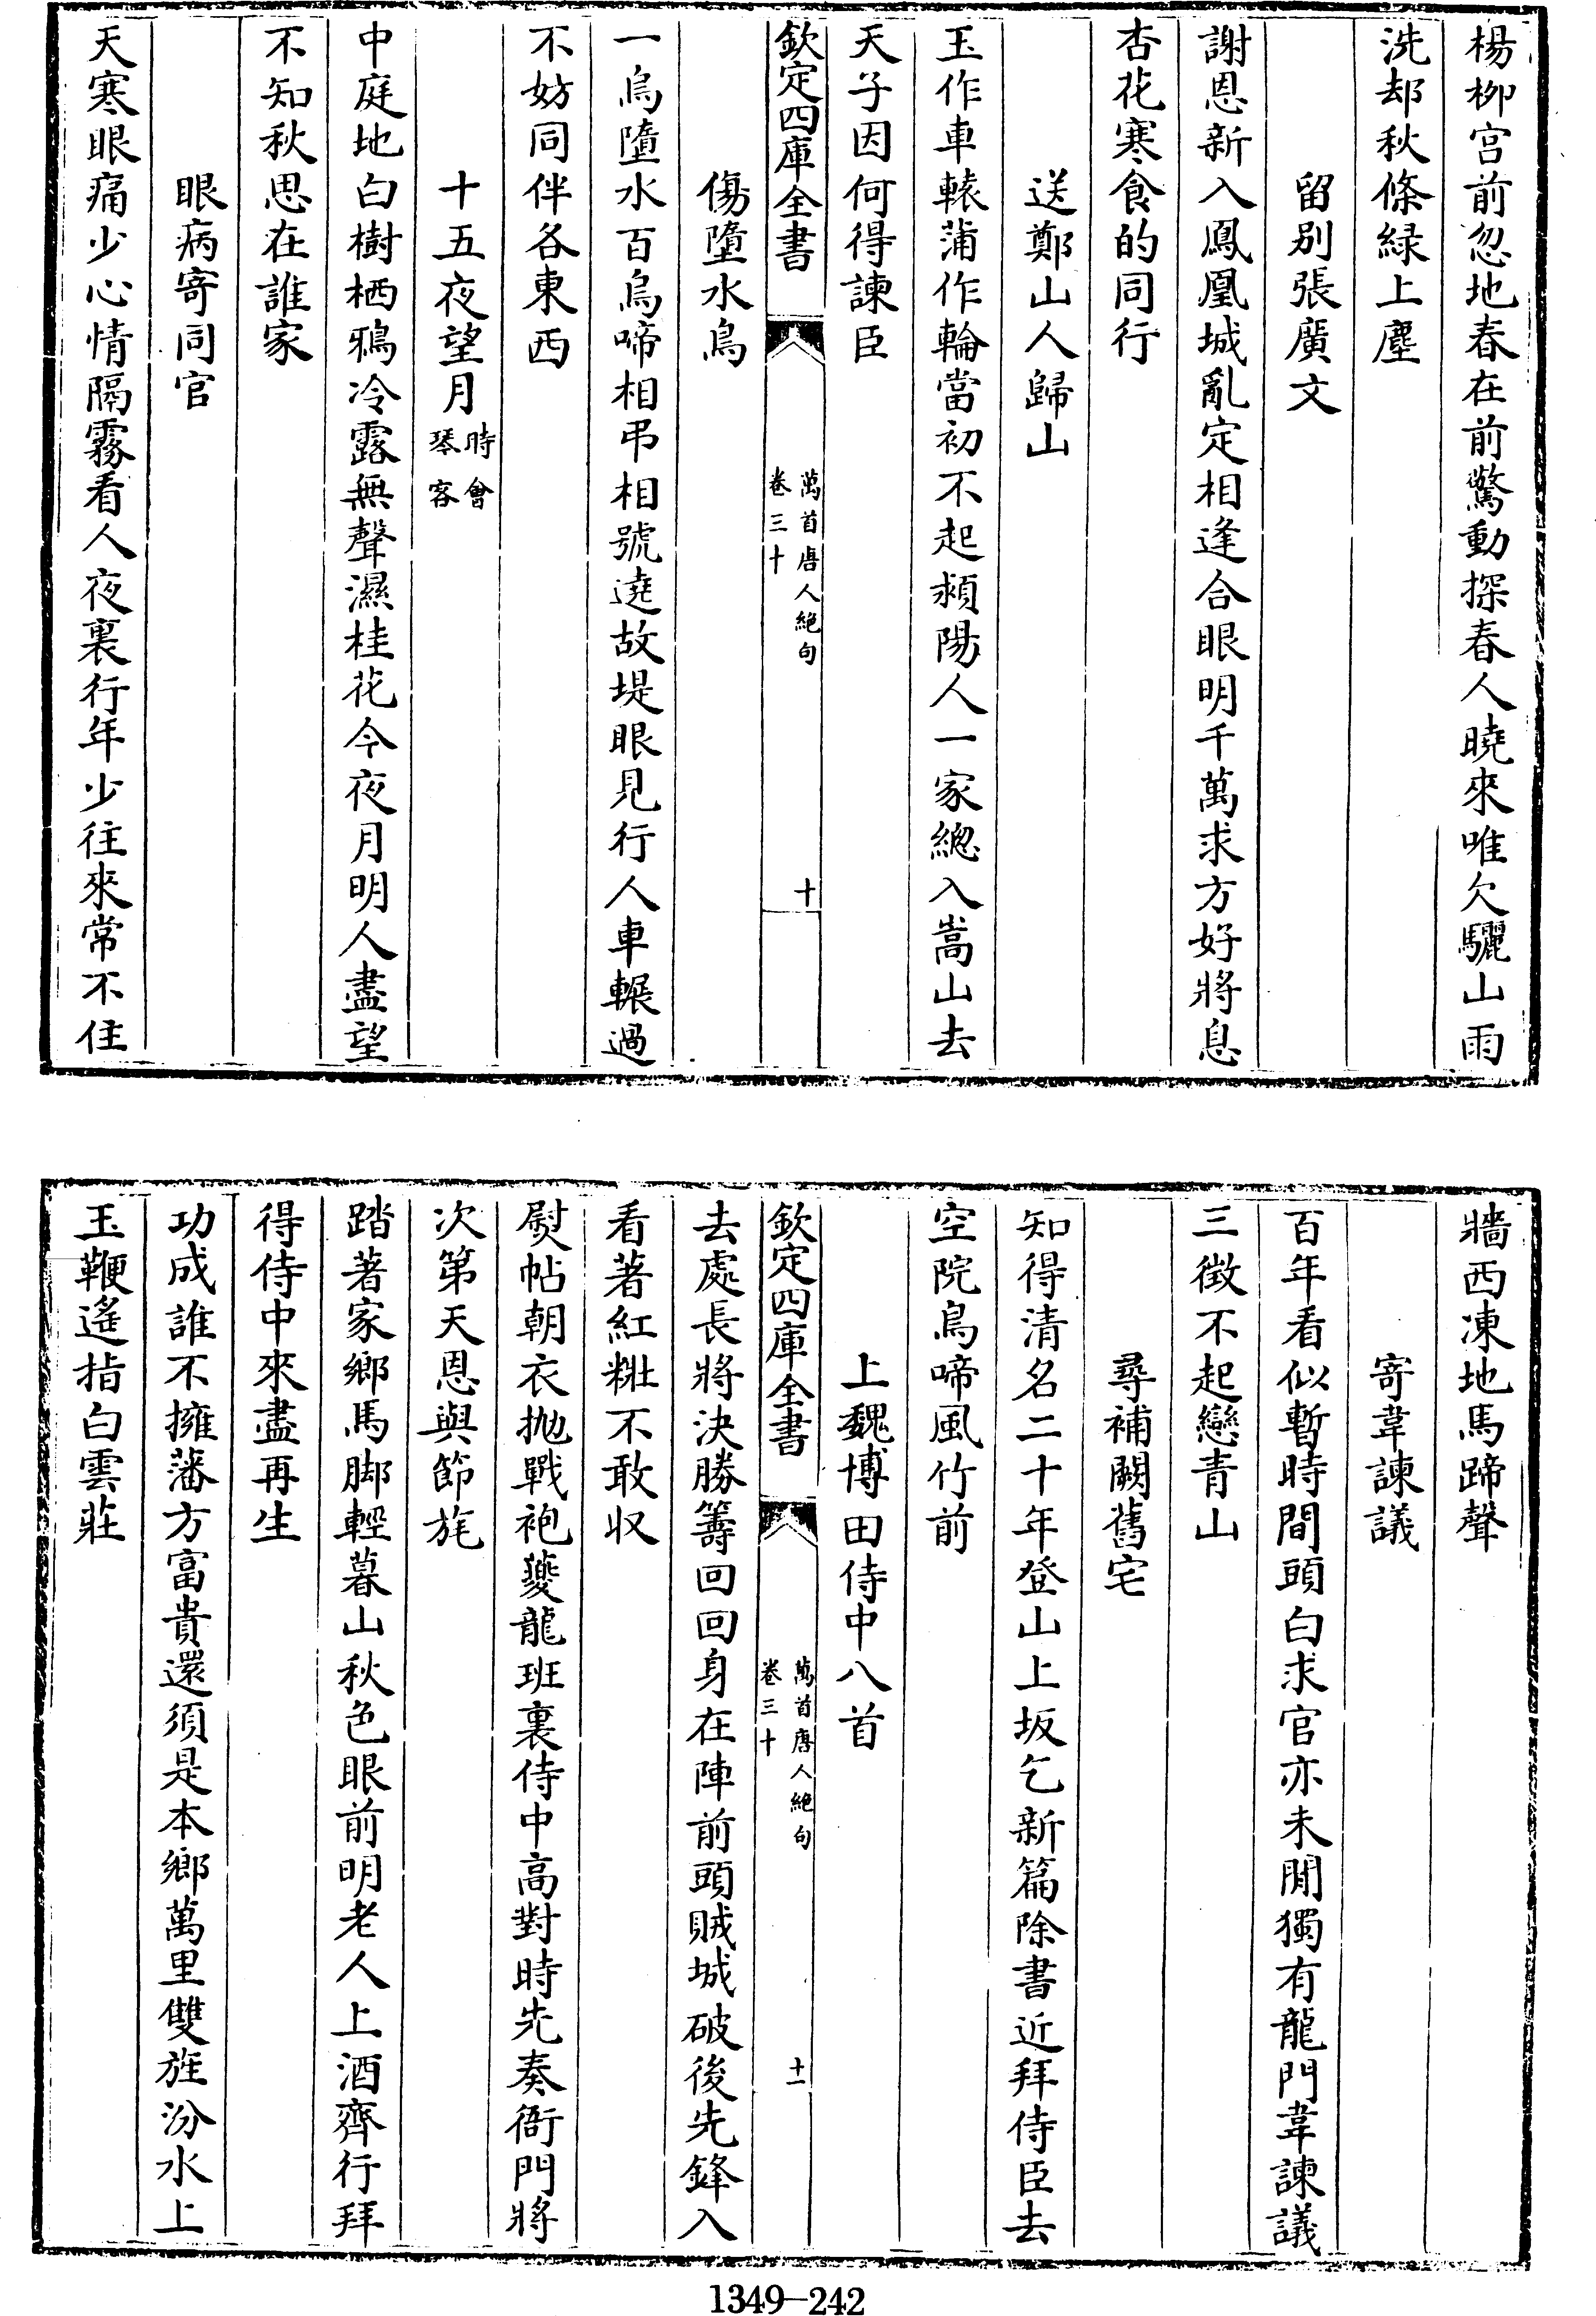 楊栁宫前忽地春在前驚動探春人曉來唯欠驪山雨
洗却秋條緑上塵
留别張廣文
謝恩新入鳳凰城亂定相逢合眼明千萬求方好將息
杏花寒食的同行
送鄭山人歸山
玉作車轅蒲作輪當初不起頻陽人一家總入嵩山去
天子因何得諫臣
欽定四庫全書
萬首唐人絶句
卷三十
十
傷墮水烏
一烏墮水百烏啼相弔相號遶故堤眼見行人車輾過
不妨同伴各東西
十五夜望月時會琴客
中庭地白樹栖鴉冷露無聲濕桂花今夜月明人盡望
不知秋思在誰家
眼病寄同官
天寒眼痛少心情隔霧看人夜裏行年少往來常不住
牆西凍地馬蹄聲
寄韋諫議
百年看似暫時間頭白求官亦未閒獨有龍門韋諫議
三徵不起戀青山
尋補闕舊宅
知得清名二十年登山上坂乞新篇除書近拜侍臣去
空院鳥啼風竹前
上魏博田侍中八首
欽定四庫全書
萬首唐人絶句
卷三十
十一
去處長將決勝籌回回身在陣前頭賊城破後先鋒入
看著紅粧不敢収
熨帖朝衣抛戰袍夔龍班裏侍中高對時先奏衙門將
次第天恩與節旄
踏著家鄉馬脚輕暮山秋色眼前明老人上酒齊行拜
得侍中來盡再生
功成誰不擁藩方富貴還須是本鄉萬里雙旌汾水上
玉鞭遙指白雲莊
1349—242